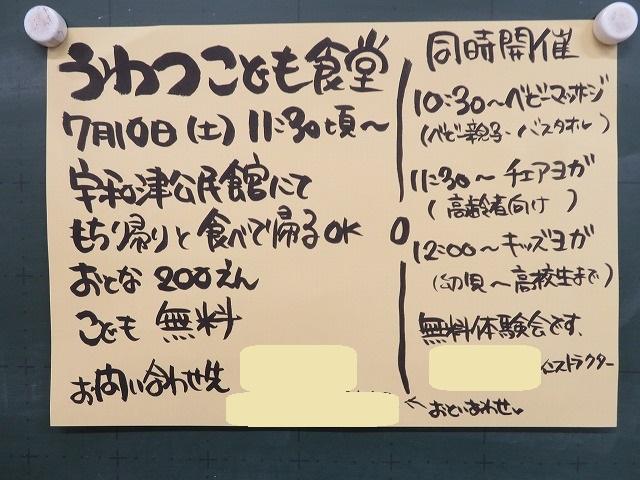 うわつこども食堂
7月10日(土) 11:30頃〜
宇和津公民館にて
もち帰りと食べて帰るOK
おとな 200えん
こども 無料
お問い合わせ先
同時開催
10:30〜ベビーマッサージ
(ベビー親子・バスタオル)
11:30〜チェアヨガ
(高齢者向け)
12:00〜キッズヨガ
(幼児〜高校生まで)
無料体験会です、
インストラクター
←おといあわせ。